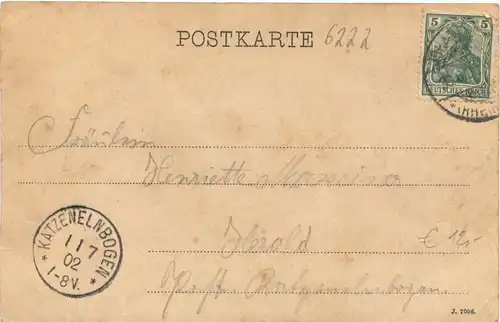 POSTKARTE 6222
5 5
DEUTSCHES REICH
Fräulein
Henriette
Herold
Post Katzenelnbogen
€ 12,-
* KATZENELNBOGEN *
11 7
02
1-8V.
J. 7006.